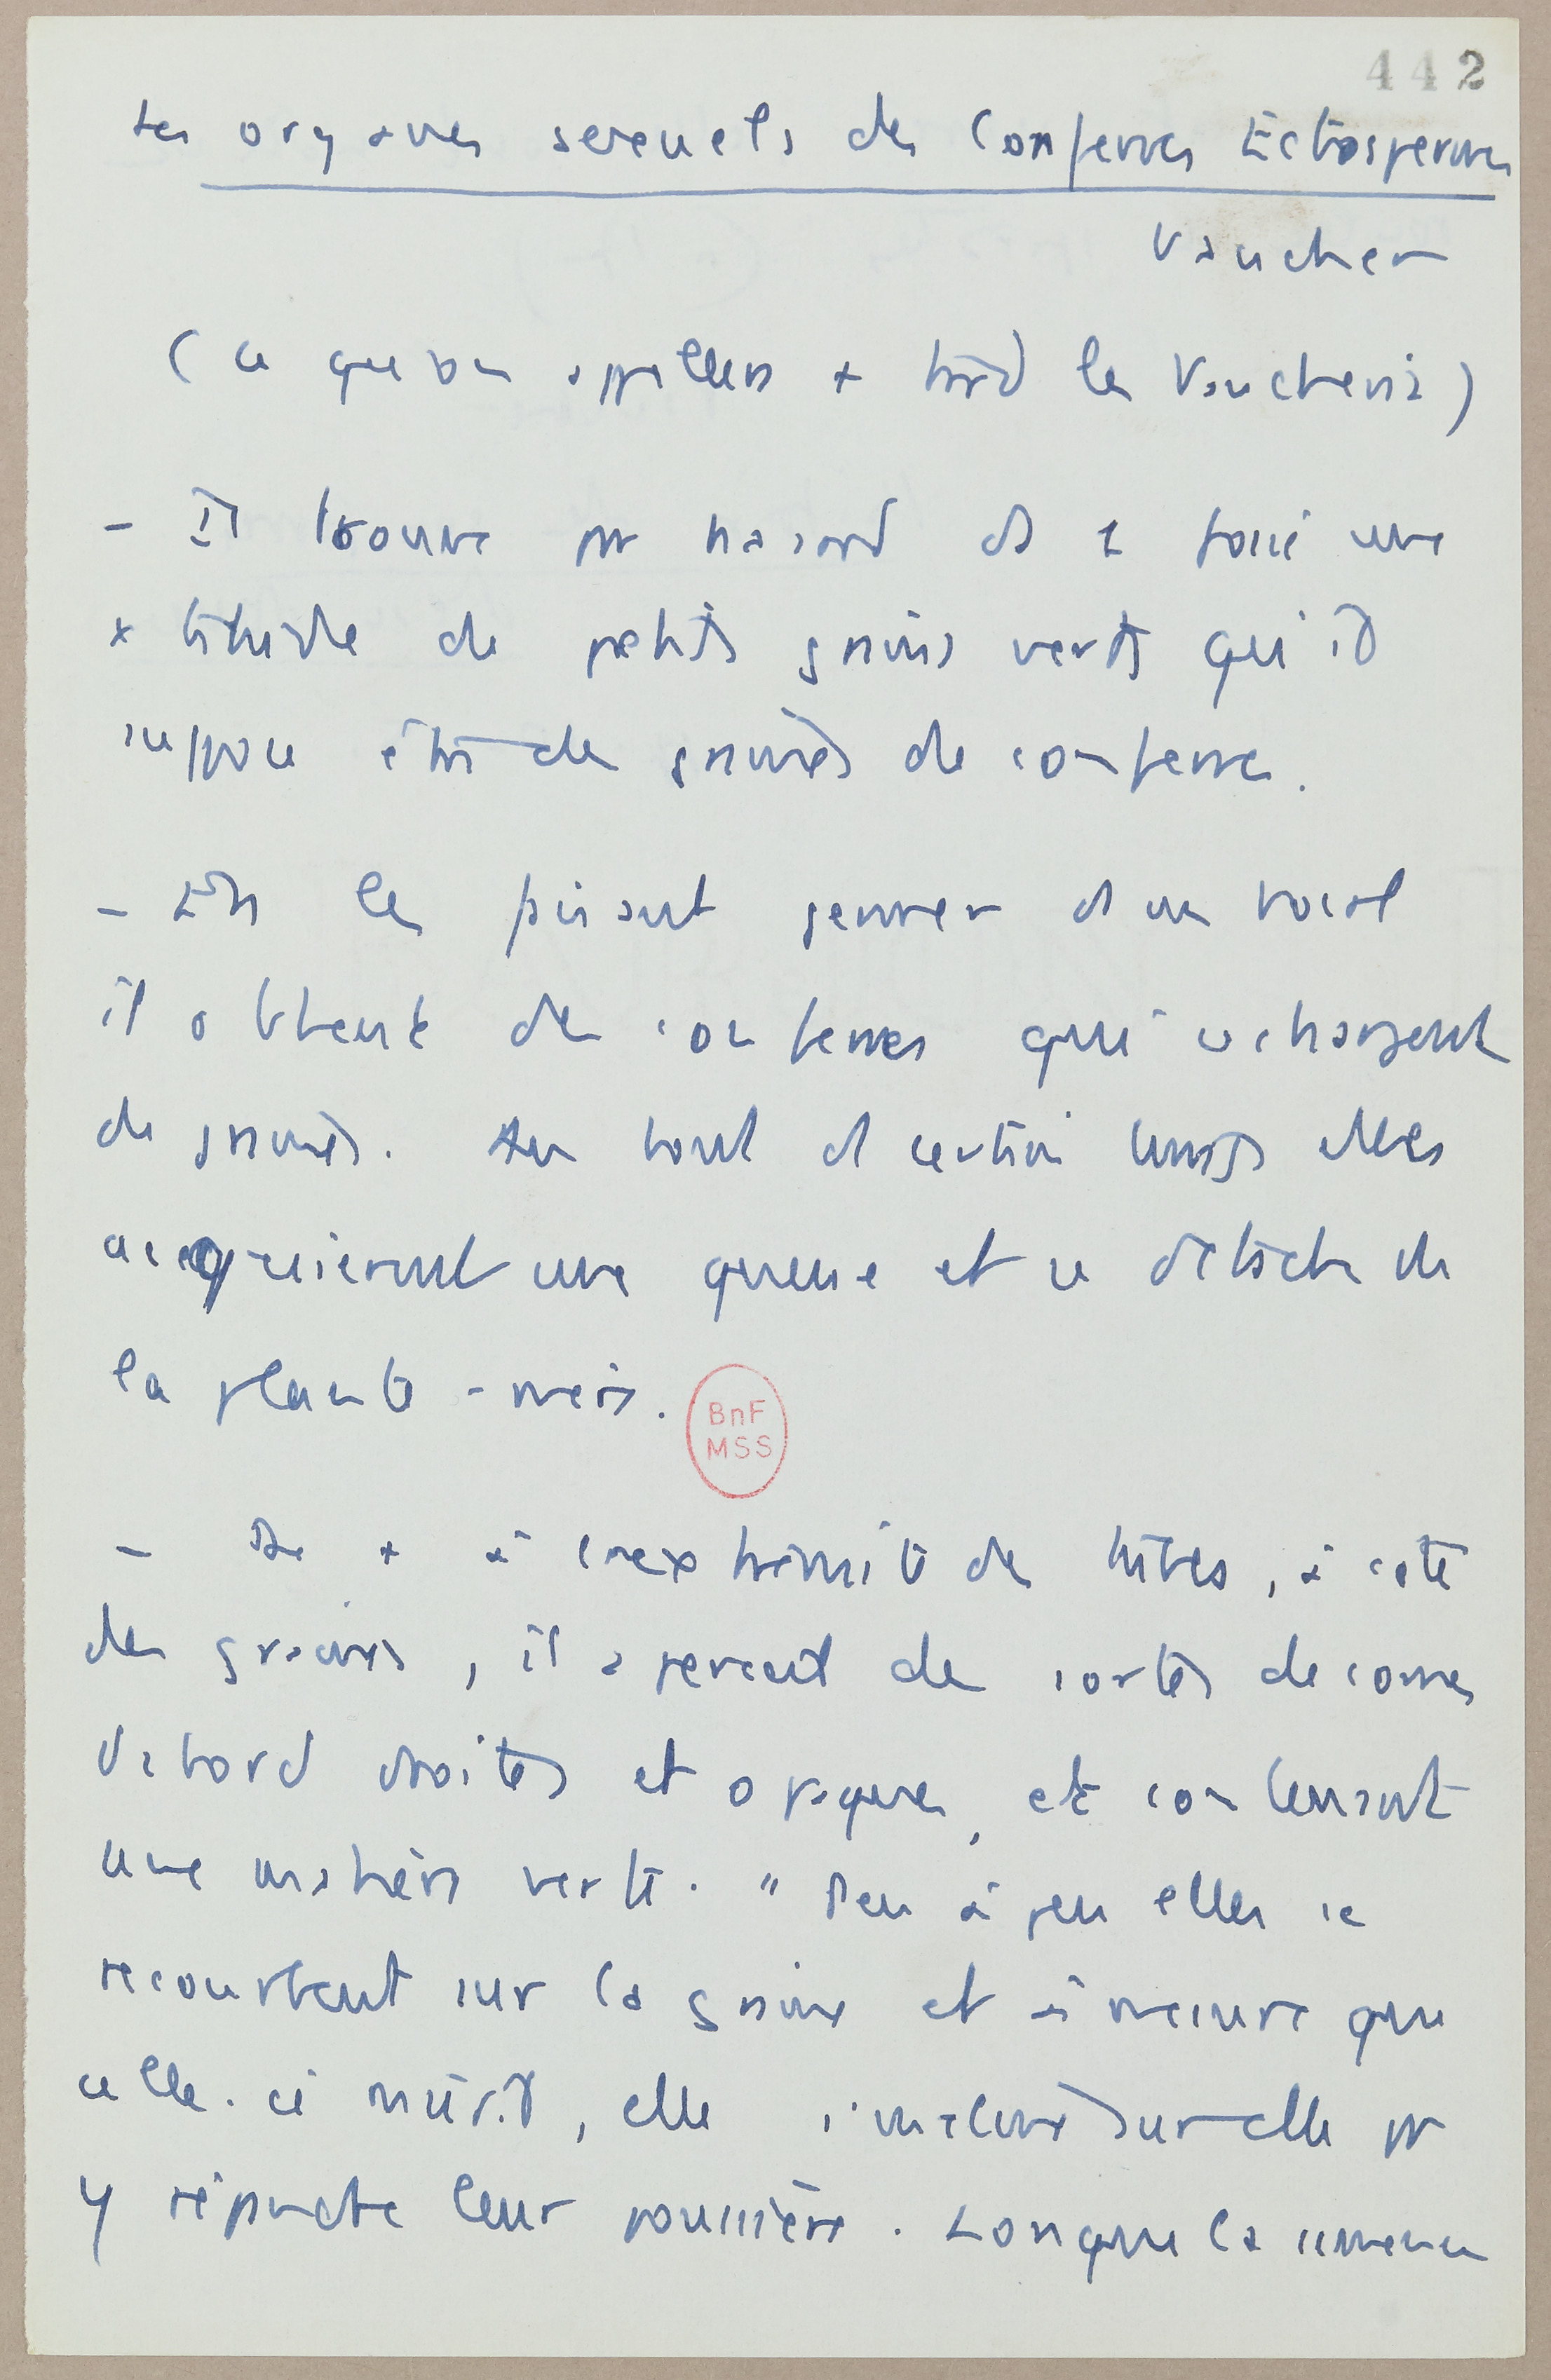 442
Les organes sexuels des Conferves Ectospermes
Vaucher
(ce que on appellera + tard les Vaucheria)
- Il trouve pr hasard ds 1 fossé une
x titude de petits grains verts qu'il
suppose être des graines de conferve.
- En les faisant germer ds un bocal
il obtient des conferves qui se chargent
de graines. Au bout d certain temps elles
acquièrent une queue et se détache de
la plante-mère.
BnF
MSS
- De + à l'extrémité des tubes, à côté
des graines, il aperçoit des sortes de cornes
d'abord droites et opaques, et contenant
une matière verte. "Peu à peu elles se
recourbent sur la graine et à mesure que
celle-ci mûrit, elle s'incline sur elle pr
y répandre leur poussière. Lorsque la semence